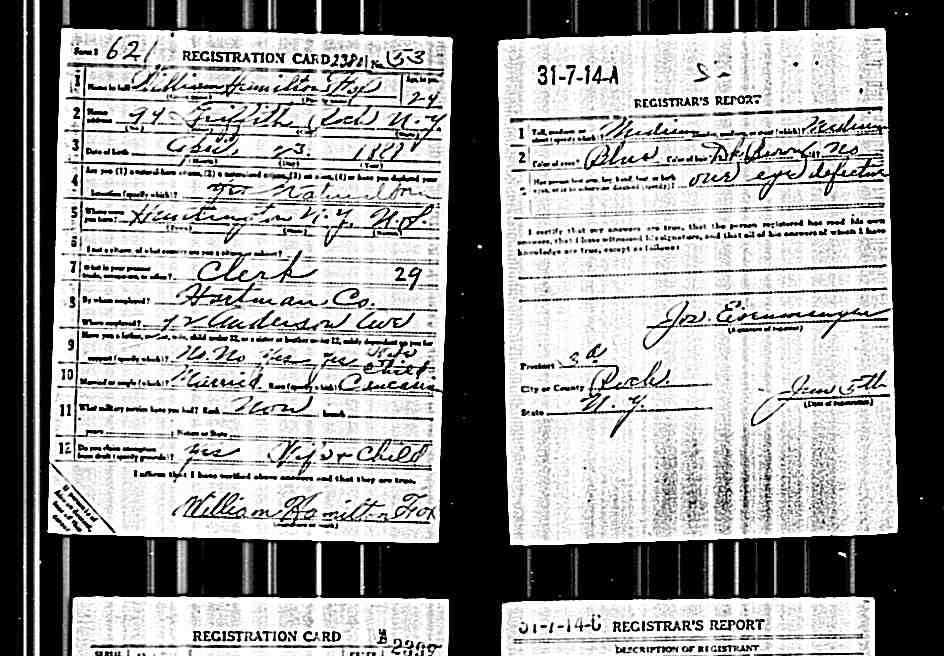 Form 1 621 REGISTRATION CARD 2380 No. 53
1 Name in full William Hamilton Fox Age, in yrs. 24
2 Home address 94 Griffith Roch N.Y.
3 Date of birth 23
4 Are you (1) a natural-born citizen, (2) a naturalized citizen, (3) an alien, (4) or have you declared your
intention (specify which)? Yes Natural born
5 Where were you born? Huntington N.Y. U.S.
6 If not a citizen, of what country are you a citizen or subject?
7 What is your present trade, occupation, or office? Clerk 29
8 By whom employed? Hartman Co.
Where employed? 42 Anderson Ave
9 Have you a father, mother, wife, child under 12, or a sister or brother under 12, solely dependent on you for
support (specify which)? No No yes yes Wife Child
10 Married or single (which)? Married Race (specify which)?
11 What military service have you had? Rank None branch
years Nation or State
12 Do you claim exemption from draft (specify grounds)? Yes Wife + Child
I affirm that I have verified above answers and that they are true.
William Hamilton Fox
(Signature or mark)
31-7-14-A
REGISTRAR'S REPORT
1 Tall, medium, or short (specify which)? Medium Slender, medium, or stout (which)? Medium
2 Color of eyes? Blue Color of hair? Dk Brown Bald? No
3 Has person lost arm, leg, hand, foot, or both
eyes, or is he otherwise disabled (specify)? one eye defective
I certify that my answers are true, that the person registered has read his own
answers, that I have witnessed his signature, and that all of his answers of which I have
knowledge are true, except as follows:
Jos.
(Signature of registrar)
Precinct
City or County Roch.
State N.Y.
June 5th
(Date of registration)
REGISTRATION CARD
31-7-14-C REGISTRAR'S REPORT
DESCRIPTION OF REGISTRANT